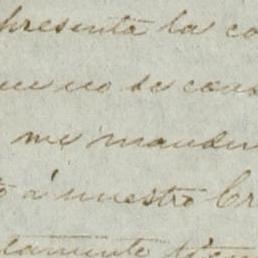 presenta la co
que no se cons
me mander
o á nuestro Cr
tamente tien